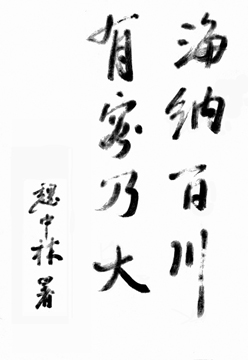 海纳百川
有容乃大
楚中林书